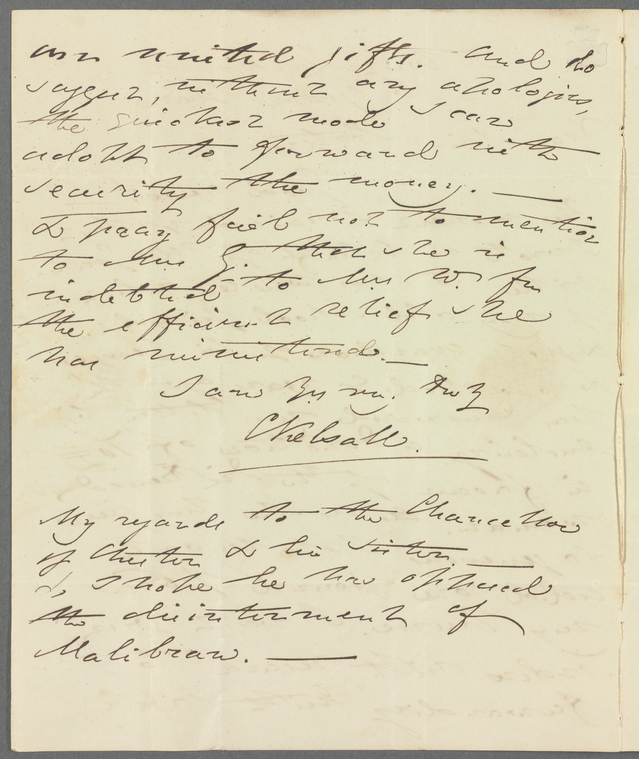 our united gifts. and do
suggest, without any apologies,
the quickest mode I can
adopt to forward with
security the money. —
& pray fail not to mention
to Mrs G. that she is
indebted to Mrs W. for
the efficient relief she
has ministered. —
I am Yrs
CKelsall.
My regards to the Chancellor
of Chester & his sister —
& I hope he has opposed
the disinterment of
Malibran. —